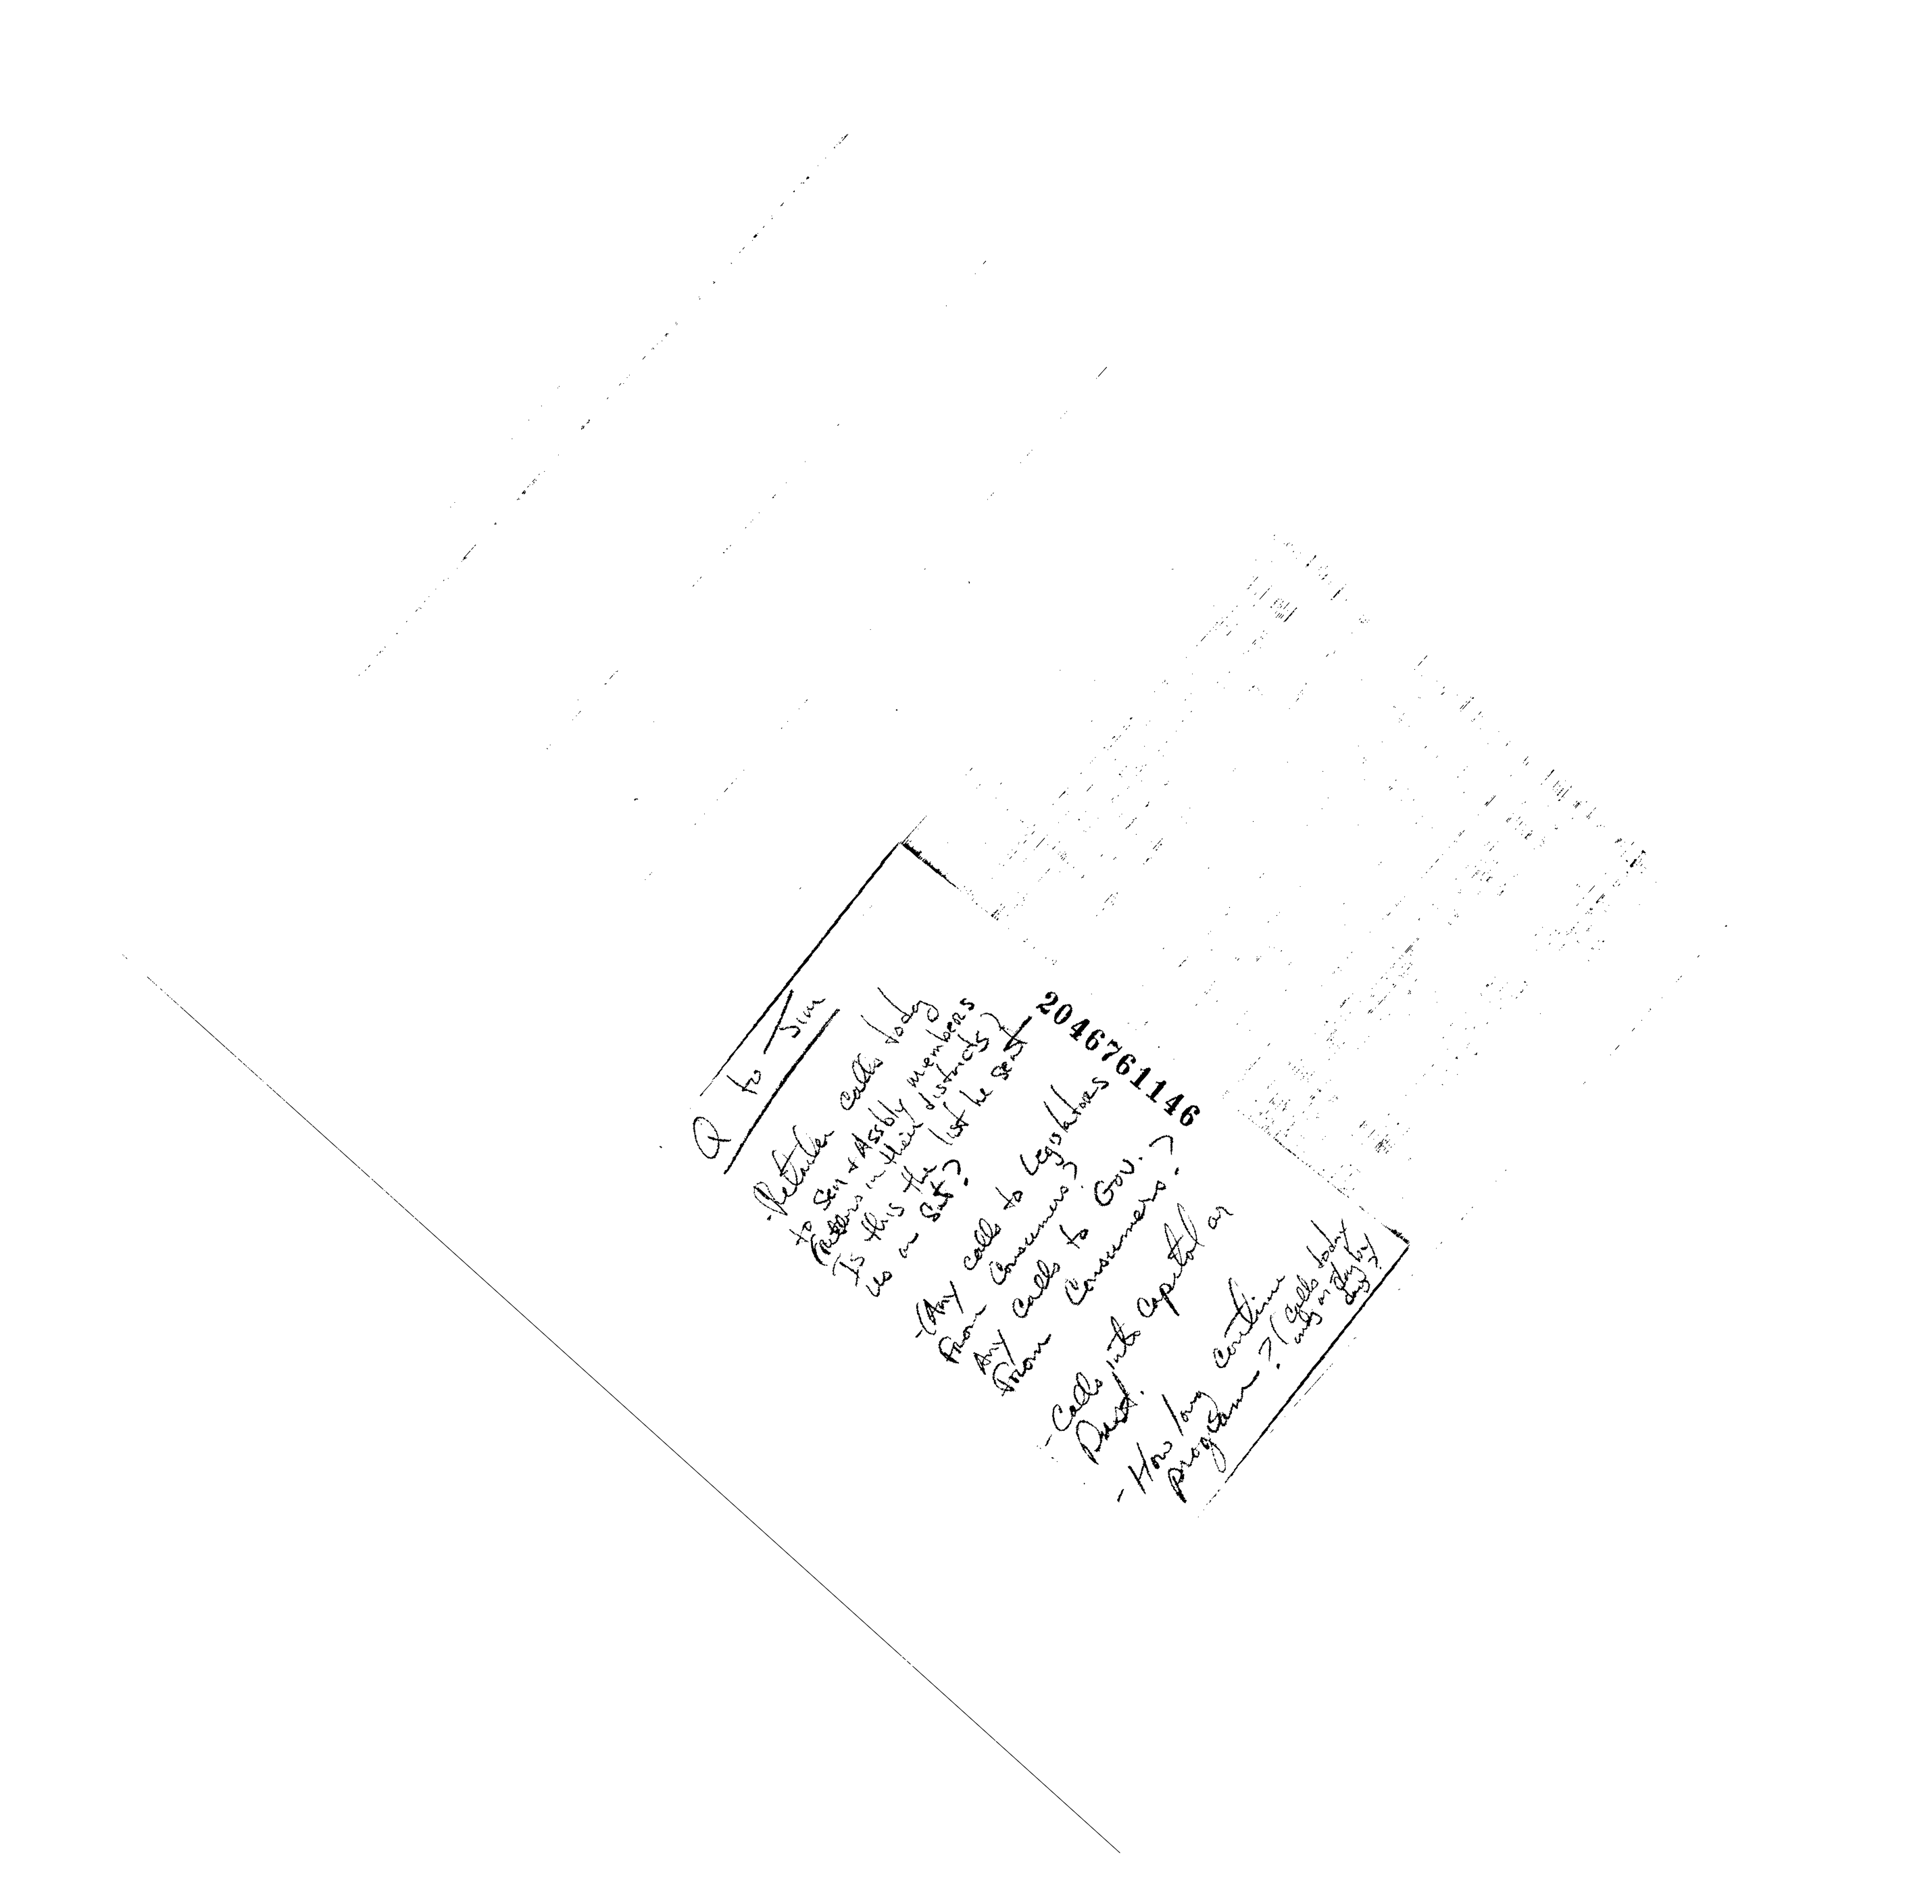 Q to Jim
- Retailer calls today
to Sen & Assbly members
in their districts?
Is this the list he sent
us on Sat?
- (Any calls to Legislators
From Consumers?
Any calls to Gov.?
From Consumers?
- Calls into Capital or
Dist.
- How long continue
program? (calls today
only or day by
day?
2046761146